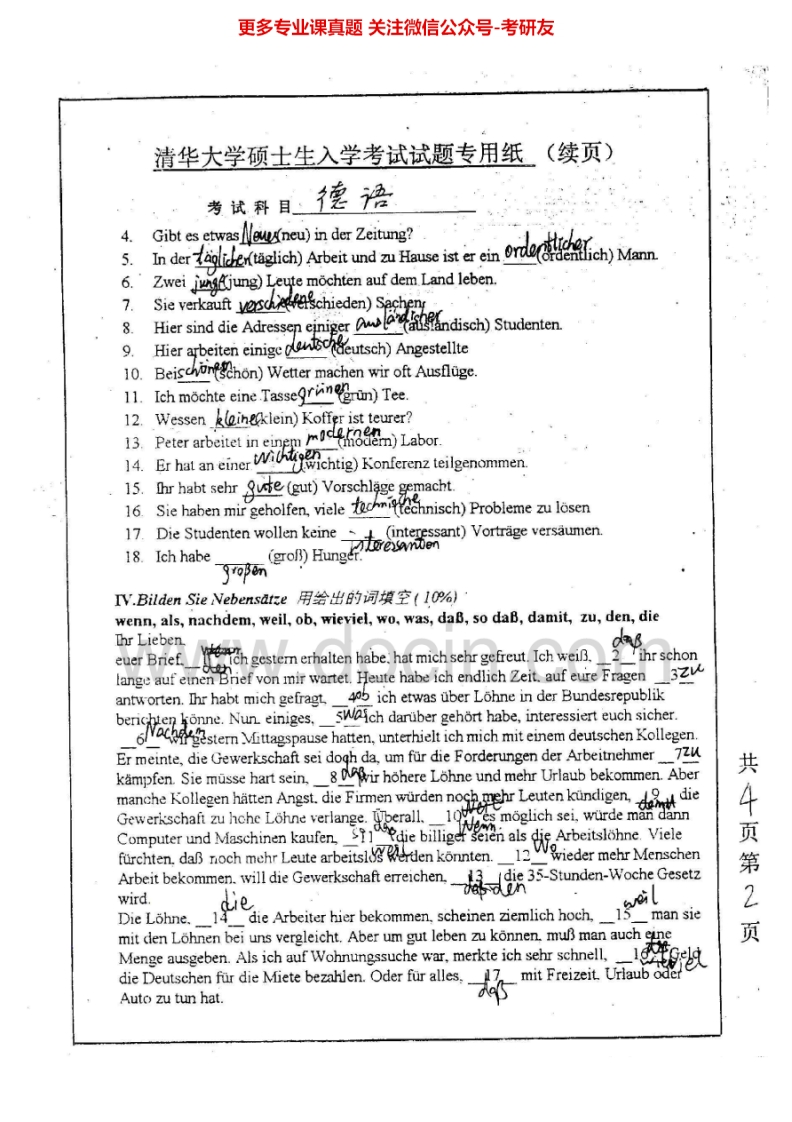 更多专业课真题 关注微信公众号-考研友
清华大学硕士生入学考试试题专用纸 (续页)
考试科目 德语
4. Gibt es etwas Neues (neu) in der Zeitung?
5. In der täglichen (täglich) Arbeit und zu Hause ist er ein ordentlicher (ordentlich) Mann.
6. Zwei junge (jung) Leute möchten auf dem Land leben.
7. Sie verkauft verschiedene (verschieden) Sachen.
8. Hier sind die Adressen einiger ausländischer (ausländisch) Studenten.
9. Hier arbeiten einige deutsche (deutsch) Angestellte
10. Bei schönen (schön) Wetter machen wir oft Ausflüge.
11. Ich möchte eine Tasse grünen (grün) Tee.
12. Wessen kleine (klein) Koffer ist teurer?
13. Peter arbeitet in einem modernen (modern) Labor.
14. Er hat an einer wichtigen (wichtig) Konferenz teilgenommen.
15. Ihr habt sehr gute (gut) Vorschläge gemacht.
16. Sie haben mir geholfen, viele technische (technisch) Probleme zu lösen
17. Die Studenten wollen keine (interessant) Vorträge versäumen.
interessanten
18. Ich habe (groß) Hunger.
großen
IV. Bilden Sie Nebensätze 用给出的词填空 (10%)
wenn, als, nachdem, weil, ob, wieviel, wo, was, daß, so daß, damit, zu, den, die
Ihr Lieben.
daß
euer Brief, den ich gestern erhalten habe, hat mich sehr gefreut. Ich weiß, 2 ihr schon
lange auf einen Brief von mir wartet. Heute habe ich endlich Zeit, auf eure Fragen 3 zu
antworten. Ihr habt mich gefragt, 4 ob ich etwas über Löhne in der Bundesrepublik
berichten könne. Nun, einiges, 5 was ich darüber gehört habe, interessiert euch sicher.
6 Nachdem wir gestern Mittagspause hatten, unterhielt ich mich mit einem deutschen Kollegen.
Er meinte, die Gewerkschaft sei doch da, um für die Forderungen der Arbeitnehmer 7 zu
kämpfen. Sie müsse hart sein, 8 daß wir höhere Löhne und mehr Urlaub bekommen. Aber
manche Kollegen hätten Angst, die Firmen würden noch mehr Leuten kündigen, 9 damit die
Gewerkschaft zu hohe Löhne verlange. Überall, 10 es möglich sei, würde man dann
Computer und Maschinen kaufen, 11 die billiger seien als die Arbeitslöhne. Viele
fürchten, daß noch mehr Leute arbeitslos werden könnten. 12 Wo wieder mehr Menschen
Arbeit bekommen, will die Gewerkschaft erreichen, 13 die 35-Stunden-Woche Gesetz
wird.
die weil
Die Löhne, 14 die Arbeiter hier bekommen, scheinen ziemlich hoch, 15 man sie
mit den Löhnen bei uns vergleicht. Aber um gut leben zu können, muß man auch eine
Menge ausgeben. Als ich auf Wohnungssuche war, merkte ich sehr schnell, 16 wieviel Geld
die Deutschen für die Miete bezahlen. Oder für alles, 17 mit Freizeit, Urlaub oder
daß
Auto zu tun hat.
共4页第2页
www.docin.com